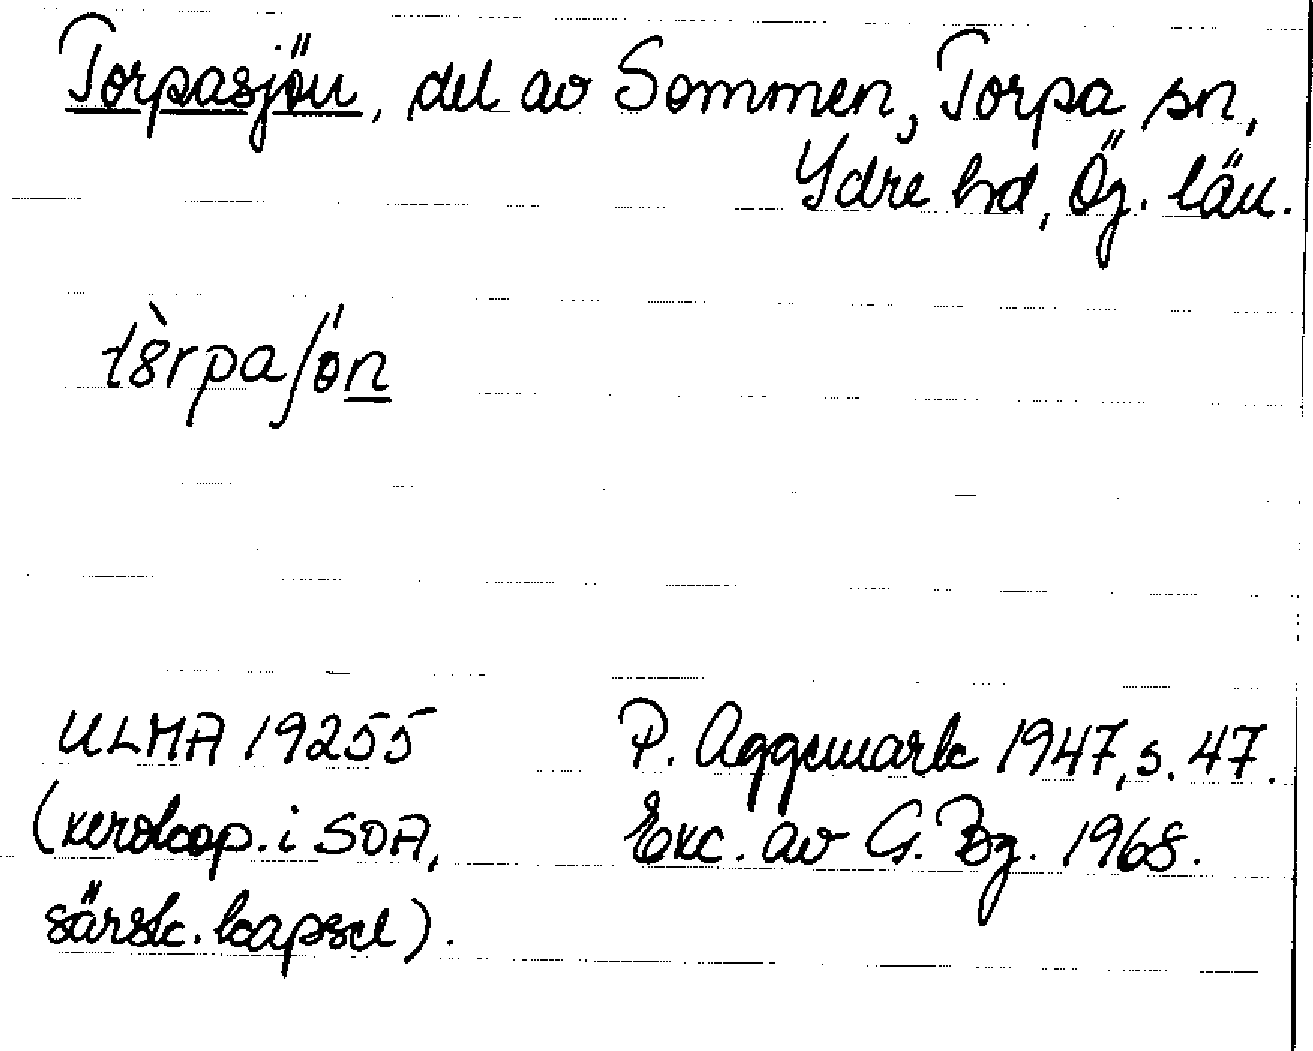 Torpasjön, del av Sommen, Torpa sn,
Ydre hd, Ög. län.
tèrpaʃön
ULMA 19255
(xerokop. i SOA,
särsk. kapsel).
P. Aggemark 1947, s. 47.
Exc. av G. Bg. 1968.